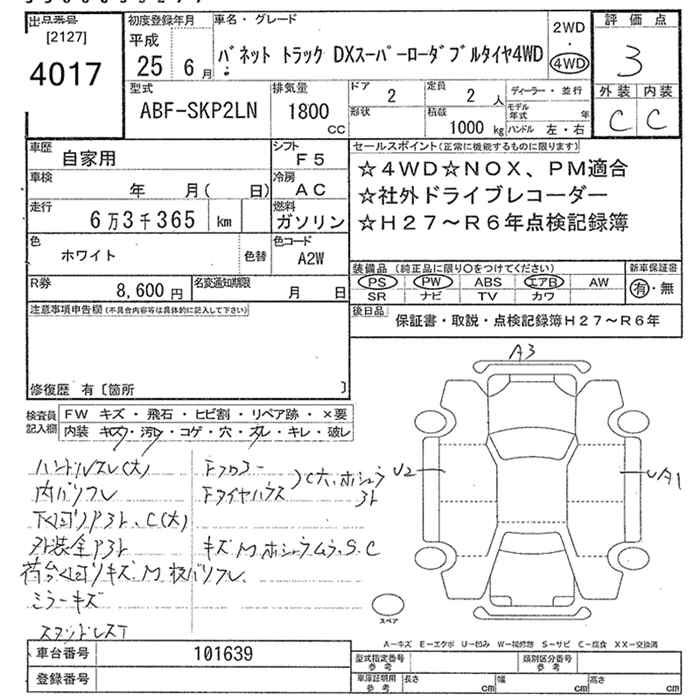 出品番号
[2127]
4017
初度登録年月
平成
25 6月
車名・グレード
バネット トラック DXスーパーローダブルタイヤ4WD
2WD
・
4WD
評価点
3
外装 内装
C C
型式
ABF-SKP2LN
排気量
1800
CC
ドア
2
定員
2人
ディーラー・並行
形状
積載
1000 kg
モデル年式 年
ハンドル 左・右
車歴
自家用
シフト
F5
車検
年 月( 日)
冷房
AC
走行
6万3千365 km
燃料
ガソリン
色
ホワイト
色替
色コード
A2W
R券
8,600 円
名変通知期限
月 日
セールスポイント(正常に機能するものに限ります)
☆4WD☆NOX、PM適合
☆社外ドライブレコーダー
☆H27～R6年点検記録簿
装備品 (純正品に限り○をつけてください)
新車保証書
PS PW ABS エアB AW
有・無
SR ナビ TV カワ
後日品
保証書・取説・点検記録簿H27～R6年
注意事項申告欄(不具合内容等は具体的に記入して下さい)
修復歴 有〔箇所 〕
検査員記入欄
FW キズ・飛石・ヒビ割・リペア跡・×要
内装 キズ・汚レ・コゲ・穴・スレ・キレ・破レ
ハンドルスレ(大)
内バリフレ
下廻りサビ、C(大)
外装全サビ
荷台廻りキズ、M
ミラーキズ
Fフロアー
Fタイヤハウス
C大
キズ、M
S、C
A3
U2
UA1
スペア
A－キズ E－エクボ U－凹み W－補修跡 S－サビ C－腐食 XX－交換済
車台番号
101639
登録番号
型式指定番号
参考
類別区分番号
参考
車庫証明用
参考
長さ cm
幅 cm
高さ cm